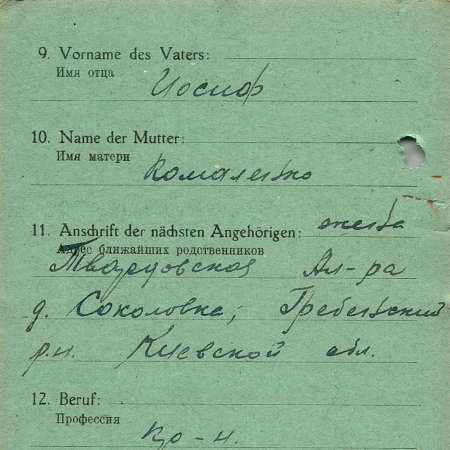 9. Vorname des Vaters:
Имя отца
Иосиф
10. Name der Mutter:
Имя матери
Комаленко
11. Anschrift der nächsten Angehörigen: жена
Адрес ближайших родственников
Твардовская Ал-ра
д. Соколовка, Гребенский
р.н. Киевской обл.
12. Beruf:
Профессия
кр-н.